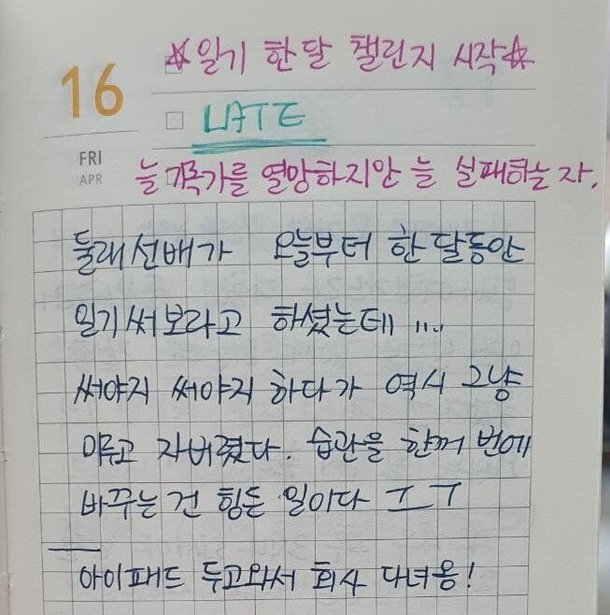 ☆일기 한달 챌린지 시작☆
16
LATE
FRI
APR
늘 기록가를 열망하지만 늘 실패하는 자.
둘래선배가 오늘부터 한 달동안
일기써보라고 하셨는데 ....
써야지 써야지 하다가 역시 그냥
미루고 자버렸다. 습관을 한꺼 번에
바꾸는 건 힘든 일이다 ㅜㅜ
아이패드 두고와서 회사 다녀옴!